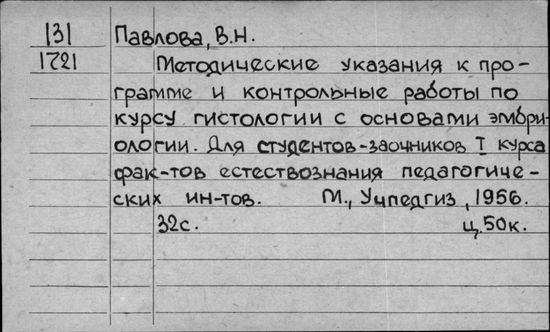 131 Павлова, В.Н.
1721 Методические указания к про-
грамме и контрольные работы по
курсу гистологии с основами эмбри-
ологии. Для студентов-заочников I курса
фак-тов естествознания педагогиче-
ских ин-тов. М., Учпедгиз, 1956.
32с. ц. 50к.